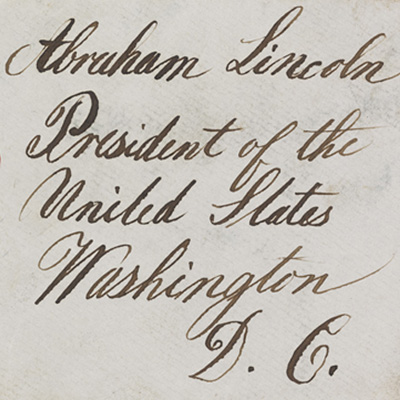 Abraham Lincoln
President of the
United States
Washington
D. C.